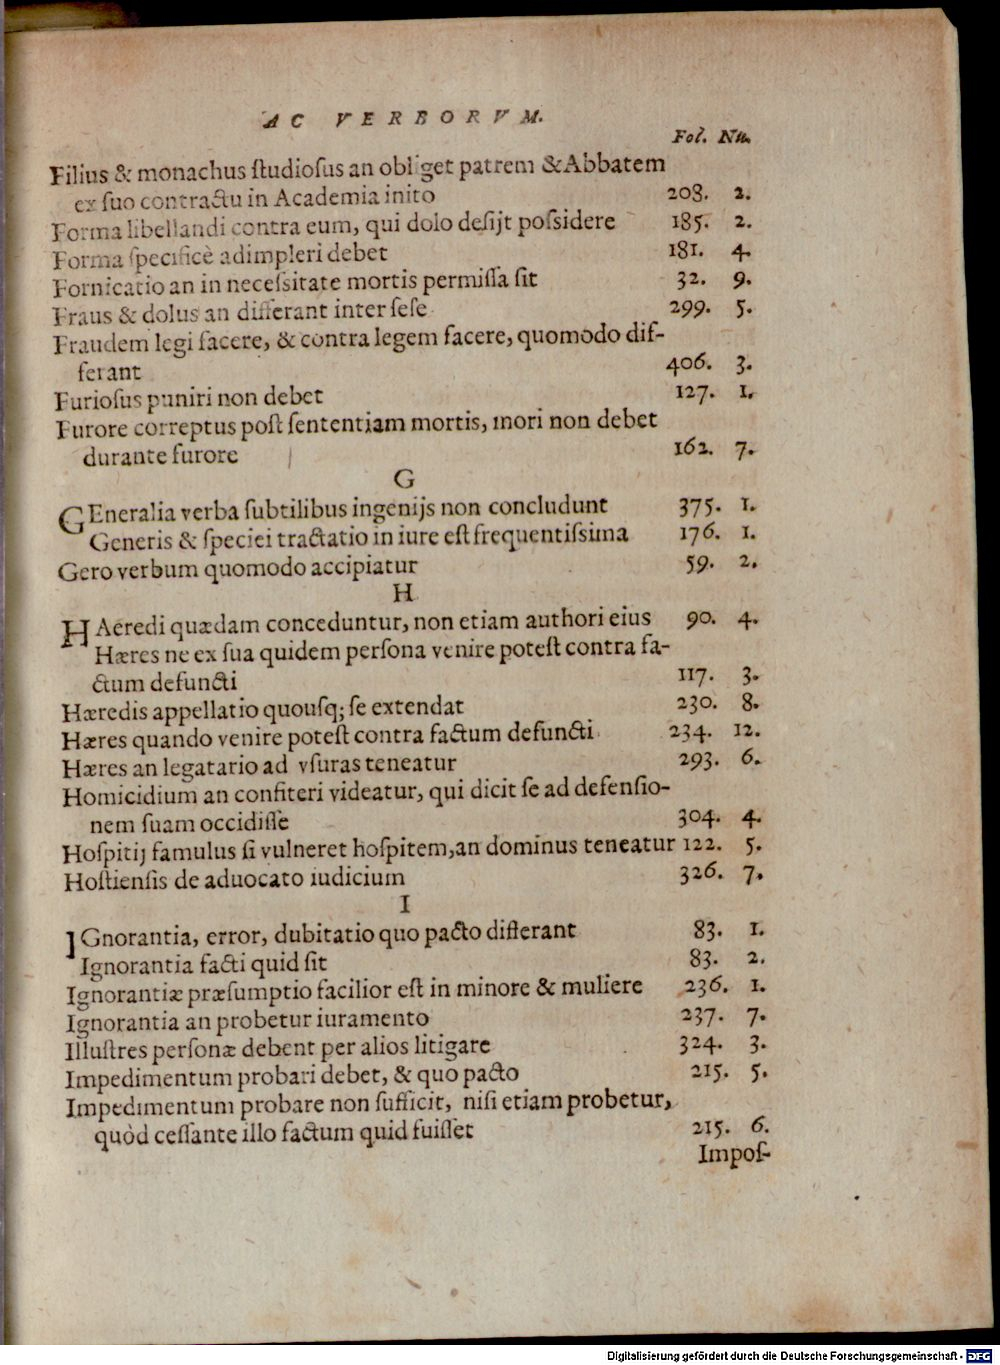 AC VERBORVM.
Fol. Nu.
Filius & monachus ſtudioſus an obliget patrem & Abbatem
ex ſuo contractu in Academia inito 208. 2.
Forma libellandi contra eum, qui dolo deſijt poſsidere 185. 2.
Forma ſpecificè adimpleri debet 181. 4.
Fornicatio an in neceſsitate mortis permiſſa ſit 32. 9.
Fraus & dolus an differant inter ſeſe 299. 5.
Fraudem legi facere, & contra legem facere, quomodo dif-
ferant 406. 3.
Furioſus puniri non debet 127. 1.
Furore correptus poſt ſententiam mortis, mori non debet
durante furore 162. 7.
G
GEneralia verba ſubtilibus ingenijs non concludunt 375. 1.
Generis & ſpeciei tractatio in iure eſt frequentiſsima 176. 1.
Gero verbum quomodo accipiatur 59. 2.
H
HAeredi quædam conceduntur, non etiam authori eius 90. 4.
Hæres ne ex ſua quidem perſona venire poteſt contra fa-
ctum defuncti 117. 3.
Hæredis appellatio quouſq; ſe extendat 230. 8.
Hæres quando venire poteſt contra factum defuncti 234. 12.
Hæres an legatario ad vſuras teneatur 293. 6.
Homicidium an confiteri videatur, qui dicit ſe ad defenſio-
nem ſuam occidiſſe 304. 4.
Hoſpitij famulus ſi vulneret hoſpitem, an dominus teneatur 122. 5.
Hoſtienſis de aduocato iudicium 326. 7.
I
IGnorantia, error, dubitatio quo pacto differant 83. 1.
Ignorantia facti quid ſit 83. 2.
Ignorantiæ præſumptio facilior eſt in minore & muliere 236. 1.
Ignorantia an probetur iuramento 237. 7.
Illuſtres perſonæ debent per alios litigare 324. 3.
Impedimentum probari debet, & quo pacto 215. 5.
Impedimentum probare non ſufficit, niſi etiam probetur,
quòd ceſſante illo factum quid fuiſſet 215. 6.
Impoſ-
Digitalisierung gefördert durch die Deutsche Forschungsgemeinschaft - DFG